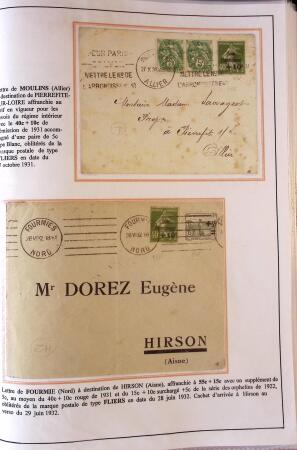 POUR PARIS
METTRE LE N° DE
L'ARRONDISSEMENT
ALLIER
L'ARRONDISSEMENT
Monsieur Madame Sauvaget
à Pierrefit s/
Allier
Lettre de MOULINS (Allier)
à destination de PIERREFITTE-
SUR-LOIRE affranchie au
tarif en vigueur pour les
envois du régime intérieur
avec le 40c + 10c de
l'émission de 1931 accom-
pagné d'une paire de 5c
type Blanc, oblitérés de la
marque postale de type
FLIERS en date du
octobre 1931.
FOURMIES
NORD
FOURMIES
NORD
Mr DOREZ Eugène
HIRSON
(Aisne)
Lettre de FOURMIE (Nord) à destination de HIRSON (Aisne), affranchie à 55c + 15c avec un supplément de
5c, au moyen du 40c + 10c rouge de 1931 et du 15c + 10c surchargé +5c de la série des orphelins de 1922,
oblitérés de la marque postale de type FLIERS en date du 28 juin 1932. Cachet d'arrivée à Hirson au
verso du 29 juin 1932.